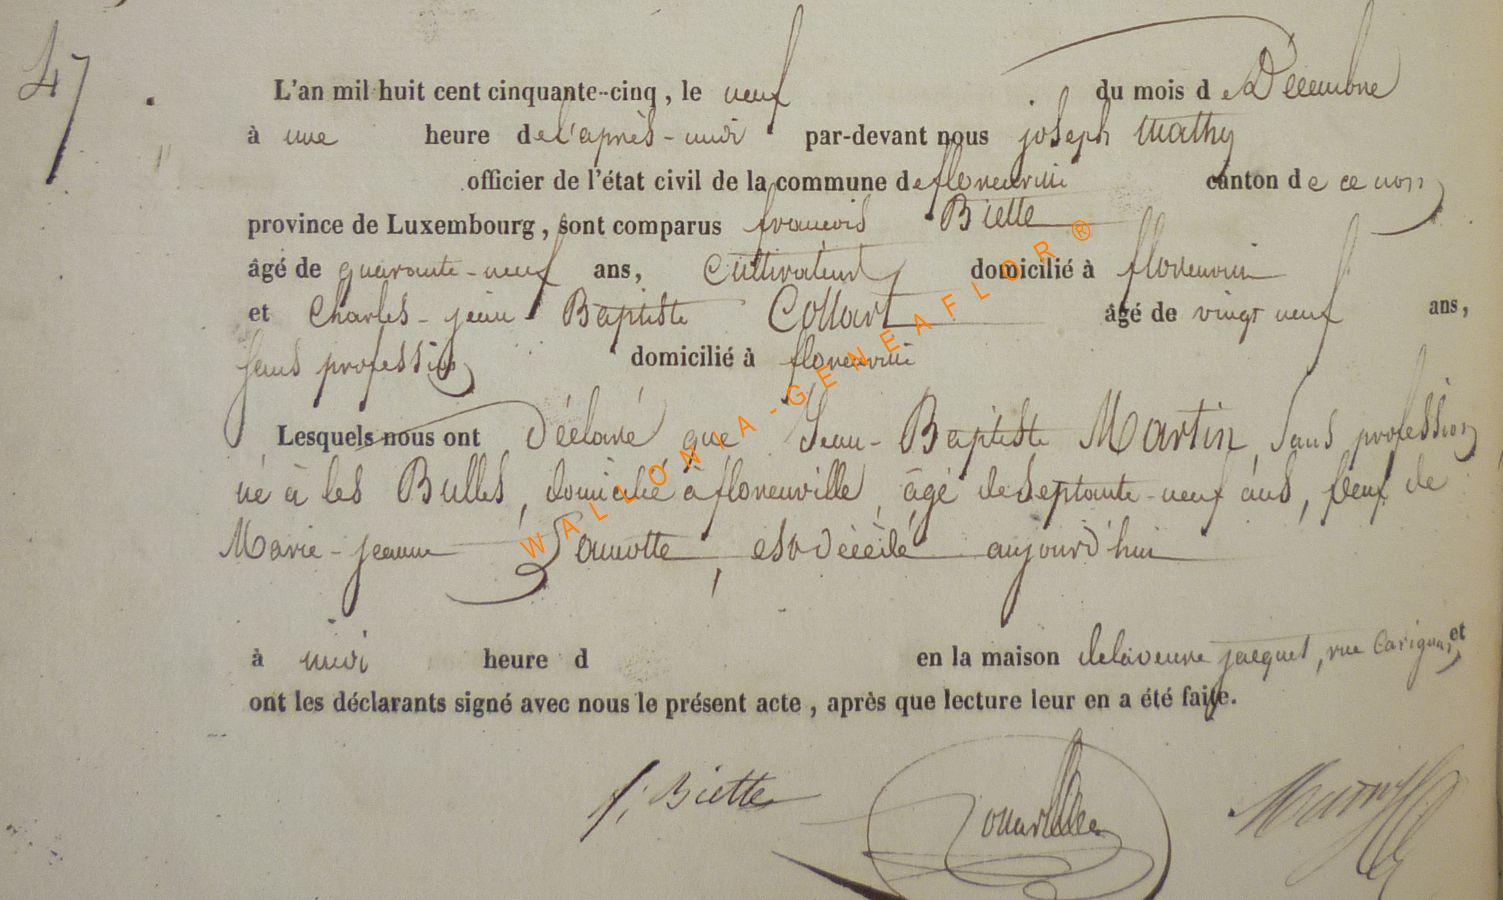 47
L'an mil huit cent cinquante-cinq, le neuf du mois de Décembre
à une heure de l'après-midi par-devant nous joseph Mathy
officier de l'état civil de la commune de florenville canton de ce nom,
province de Luxembourg, sont comparus françois Biette
âgé de quarante-neuf ans, Cultivateur domicilié à florenville
et Charles-jean Baptiste Collart âgé de vingt neuf ans,
sans profession domicilié à florenville
Lesquels nous ont Déclaré que Jean-Baptiste Martin, sans profession
né à les Bulles, domicilié à florenville, âgé de septante-neuf ans, veuf de
Marie-jeanne, est décédé aujourd'hui
à midi heure d en la maison de la veuve jacquet, rue Carignan, et
ont les déclarants signé avec nous le présent acte, après que lecture leur en a été faite.
f. Biette
WALLONIA-GENEAFLOR®